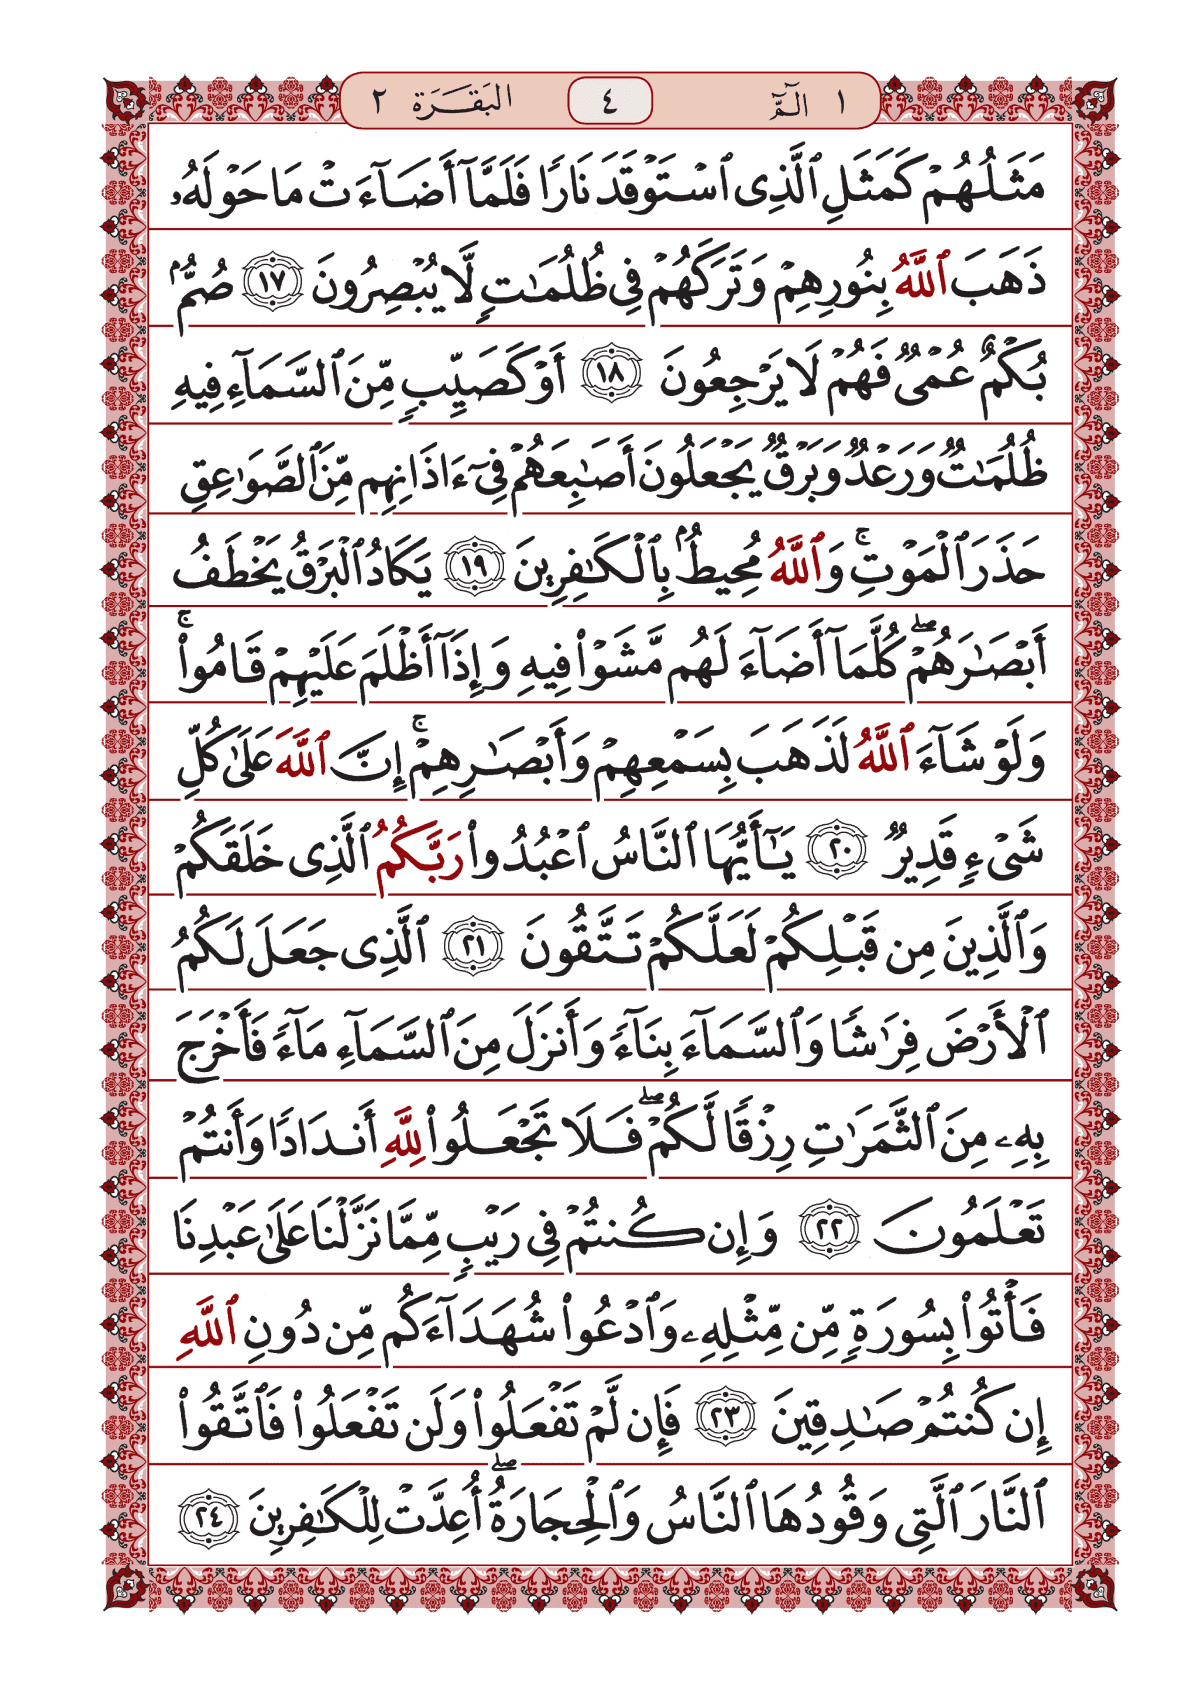 ١ الٓمّٓ ٤ البَقَرَة ٢
مَثَلُهُمْ كَمَثَلِ ٱلَّذِى ٱسْتَوْقَدَ نَارًا فَلَمَّآ أَضَآءَتْ مَا حَوْلَهُۥ
ذَهَبَ ٱللَّهُ بِنُورِهِمْ وَتَرَكَهُمْ فِى ظُلُمَـٰتٍ لَّا يُبْصِرُونَ ١٧ صُمٌّۢ
بُكْمٌ عُمْىٌ فَهُمْ لَا يَرْجِعُونَ ١٨ أَوْ كَصَيِّبٍ مِّنَ ٱلسَّمَآءِ فِيهِ
ظُلُمَـٰتٌ وَرَعْدٌ وَبَرْقٌ يَجْعَلُونَ أَصَـٰبِعَهُمْ فِىٓ ءَاذَانِهِم مِّنَ ٱلصَّوَٰعِقِ
حَذَرَ ٱلْمَوْتِ ۚ وَٱللَّهُ مُحِيطٌۢ بِٱلْكَـٰفِرِينَ ١٩ يَكَادُ ٱلْبَرْقُ يَخْطَفُ
أَبْصَـٰرَهُمْ ۖ كُلَّمَآ أَضَآءَ لَهُم مَّشَوْا۟ فِيهِ وَإِذَآ أَظْلَمَ عَلَيْهِمْ قَامُوا۟ ۚ
وَلَوْ شَآءَ ٱللَّهُ لَذَهَبَ بِسَمْعِهِمْ وَأَبْصَـٰرِهِمْ ۚ إِنَّ ٱللَّهَ عَلَىٰ كُلِّ
شَىْءٍ قَدِيرٌ ٢٠ يَـٰٓأَيُّهَا ٱلنَّاسُ ٱعْبُدُوا۟ رَبَّكُمُ ٱلَّذِى خَلَقَكُمْ
وَٱلَّذِينَ مِن قَبْلِكُمْ لَعَلَّكُمْ تَتَّقُونَ ٢١ ٱلَّذِى جَعَلَ لَكُمُ
ٱلْأَرْضَ فِرَٰشًا وَٱلسَّمَآءَ بِنَآءً وَأَنزَلَ مِنَ ٱلسَّمَآءِ مَآءً فَأَخْرَجَ
بِهِۦ مِنَ ٱلثَّمَرَٰتِ رِزْقًا لَّكُمْ ۖ فَلَا تَجْعَلُوا۟ لِلَّهِ أَندَادًا وَأَنتُمْ
تَعْلَمُونَ ٢٢ وَإِن كُنتُمْ فِى رَيْبٍ مِّمَّا نَزَّلْنَا عَلَىٰ عَبْدِنَا
فَأْتُوا۟ بِسُورَةٍ مِّن مِّثْلِهِۦ وَٱدْعُوا۟ شُهَدَآءَكُم مِّن دُونِ ٱللَّهِ
إِن كُنتُمْ صَـٰدِقِينَ ٢٣ فَإِن لَّمْ تَفْعَلُوا۟ وَلَن تَفْعَلُوا۟ فَٱتَّقُوا۟
ٱلنَّارَ ٱلَّتِى وَقُودُهَا ٱلنَّاسُ وَٱلْحِجَارَةُ ۖ أُعِدَّتْ لِلْكَـٰفِرِينَ ٢٤